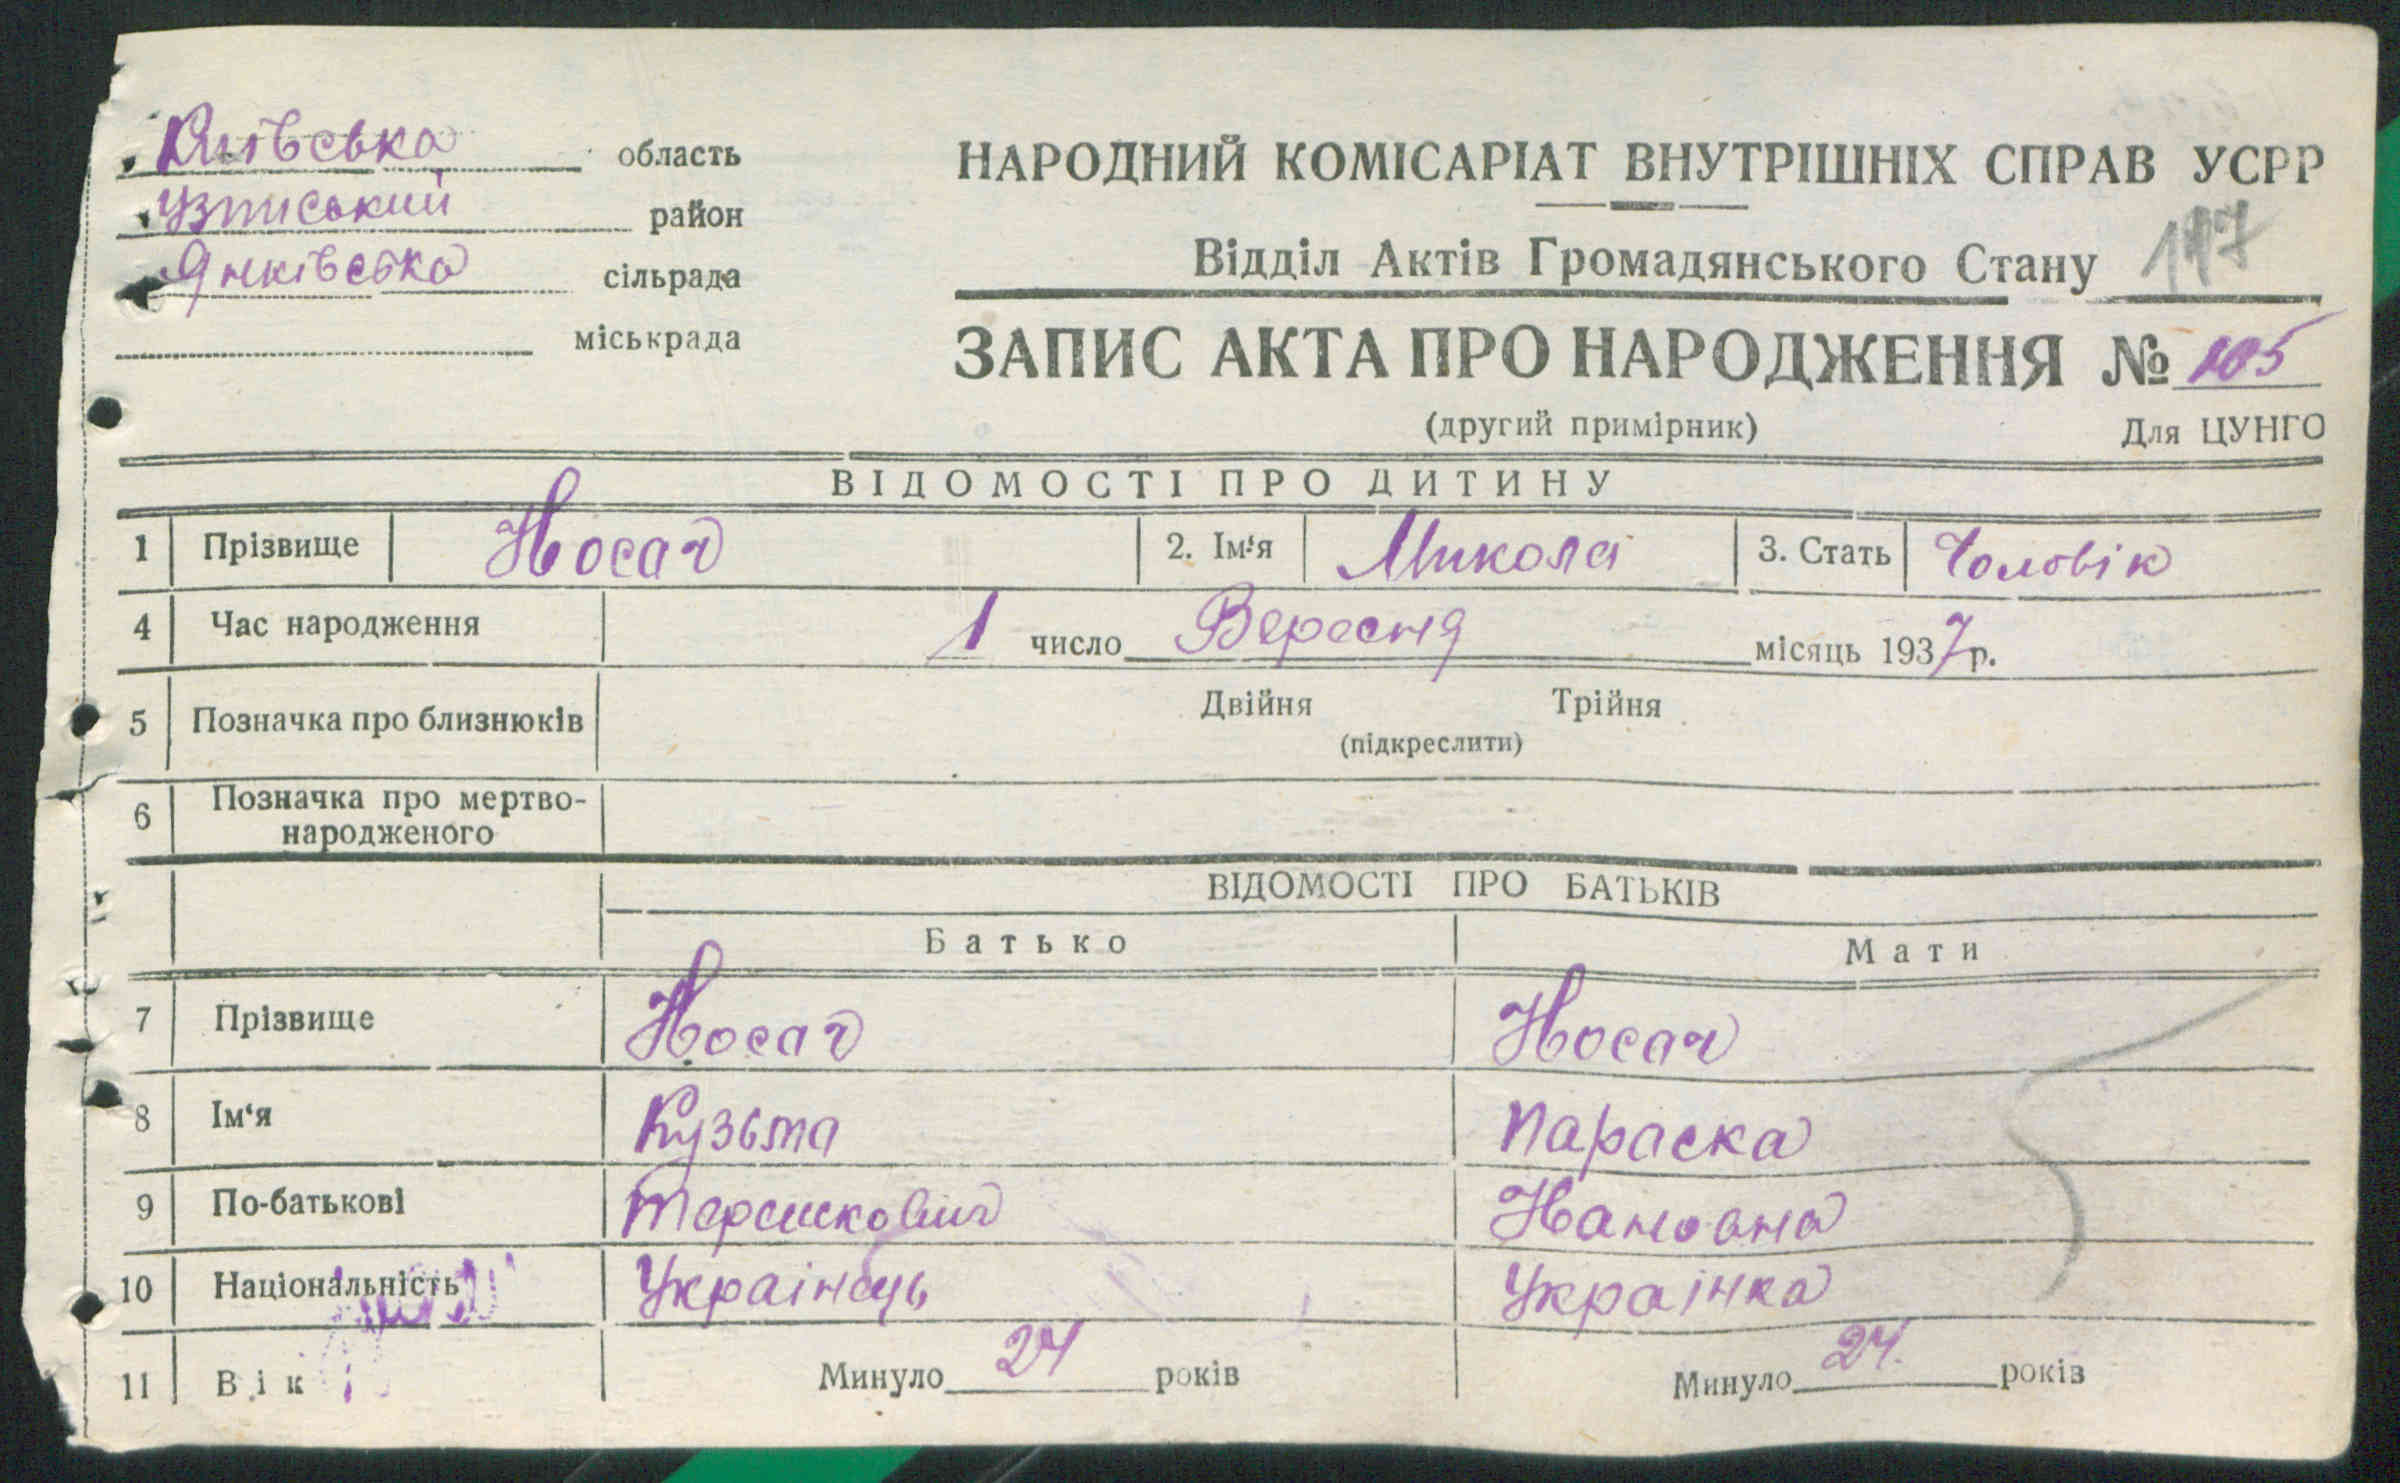 Київська область
Узинський район
Янківська сільрада
міськрада
НАРОДНИЙ КОМІСАРІАТ ВНУТРІШНІХ СПРАВ УСРР
Відділ Актів Громадянського Стану 147
ЗАПИС АКТА ПРО НАРОДЖЕННЯ № 105
(другий примірник) Для ЦУНГО
ВІДОМОСТІ ПРО ДИТИНУ
1 Прізвище Носач 2. Ім‘я Микола 3. Стать Чоловік
4 Час народження 1 число Вересня місяць 1937 р.
5 Позначка про близнюків Двійня Трійня
(підкреслити)
6 Позначка про мертво-
народженого
ВІДОМОСТІ ПРО БАТЬКІВ
Батько Мати
7 Прізвище Носач Носач
8 Ім‘я Кузьма Параска
9 По-батькові
10 Національність Українець Українка
11 Вік Минуло 24 років Минуло 24 років